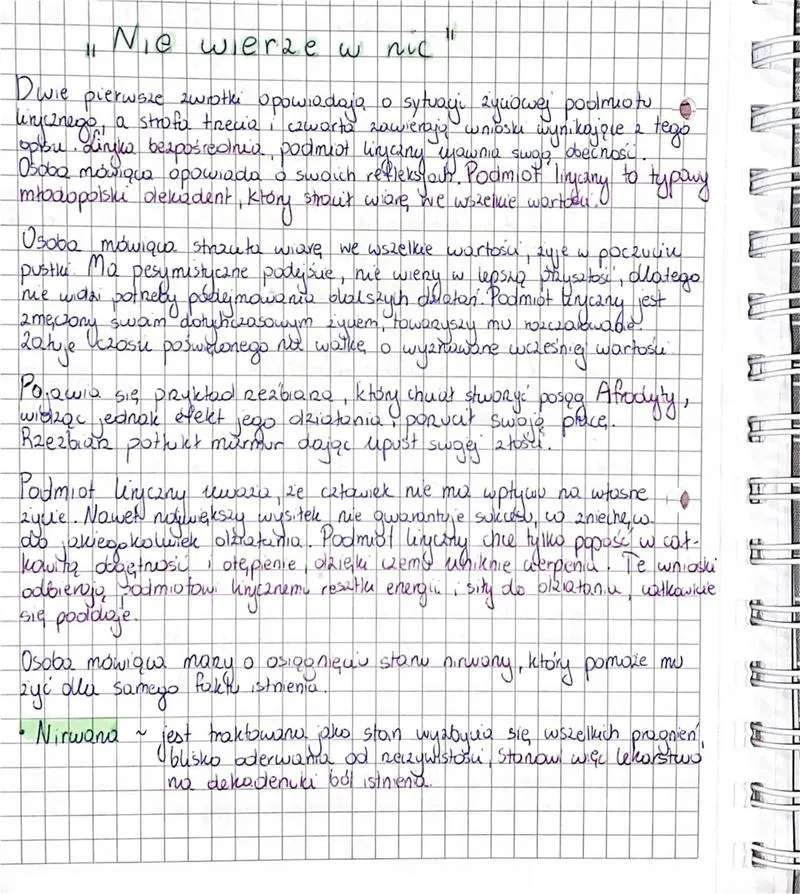 „Nie wierze w nic"
Dwie pierwsze zwrotki opowiadają o sytuacji życiowej podmiotu
lirycznego, a strofa trzecia i czwarta zawierają wnioski wynikające z tego
opisu. Liryka bezpośrednia, podmiot liryczny ujawnia swoją obecność.
Osoba mówiąca opowiada o swoich refleksjach. Podmiot liryczny to typowy
młodopolski dekadent, który stracił wiarę we wszelkie wartości.
Osoba mówiąca straciła wiarę we wszelkie wartości, żyje w poczuciu
pustki. Ma pesymistyczne podejście, nie wierzy w lepszą przyszłość, dlatego
nie widzi potrzeby podejmowania dalszych działań. Podmiot liryczny jest
zmęczony swoim dotychczasowym życiem, towarzyszy mu rozczarowanie.
Żałuje czasu poświęconego na walkę o wyznawane wcześniej wartości.
Pojawia się przykład rzeźbiarza, który chciał stworzyć posąg Afrodyty,
widząc jednak efekt jego działania, porzucił swoją pracę.
Rzeźbiarz potłukł marmur dając upust swojej złości.
Podmiot liryczny uważa, że człowiek nie ma wpływu na własne
życie. Nawet największy wysiłek nie gwarantuje sukcesu, co zniechęca
do jakiegokolwiek działania. Podmiot liryczny chce tylko popaść w cał-
kowitą obojętność i otępienie, dzięki czemu uniknie cierpienia. Te wnioski
odbierają podmiotowi lirycznemu resztki energii i siły do działania, całkowicie
się poddaje.
Osoba mówiąca marzy o osiągnięciu stanu nirwany, który pomoże mu
żyć dla samego faktu istnienia.
• Nirwana ~ jest traktowana jako stan wyzbycia się wszelkich pragnień,
blisko oderwania od rzeczywistości, stanowi więc lekarstwo
na dekadencki ból istnienia.